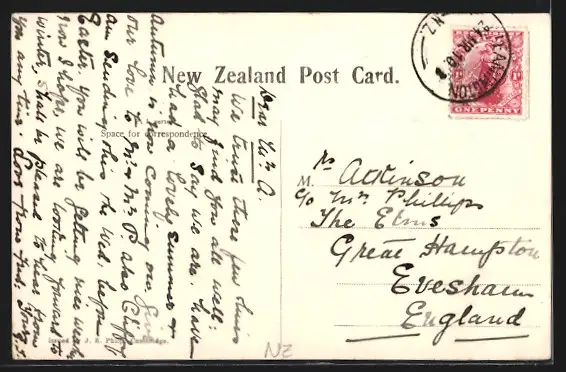 New Zealand Post Card.
Space for correspondence
Dear Mrs A.
We trust these few lines
may find you all well.
Glad to say we are. have
had a lovely summer &
Autumn is now coming on. Give
our love to Mr & Mrs P. also Cliffy
am sending this the Wed. before
Easter. You will be getting nice weather
now I hope, we are looking forward to
winter, shall be pleased to hear from
you any time. Love from
Issued by J. R.
ONE PENNY
M rs Atkinson
c/o Mrs Phillips
The Elms
Great Hampton
Evesham
England
NZ